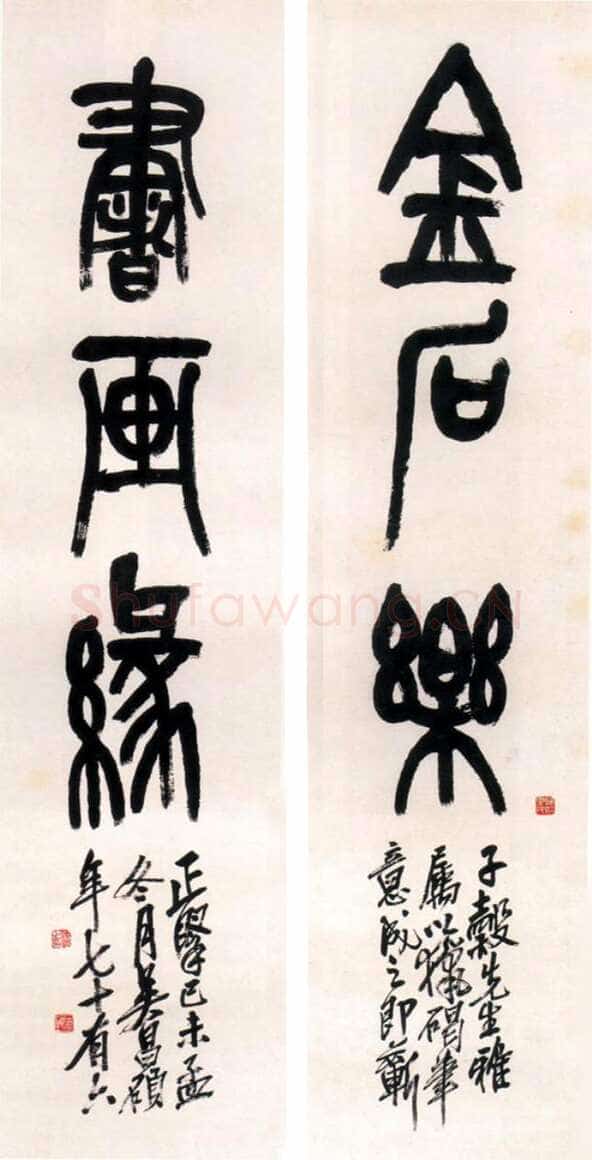 金石樂
書画緣
子穀先生雅
屬以獵碣筆
意成之即蘄
正擘己未孟
冬月吳昌碩
年七十有六
Shufawang.CN